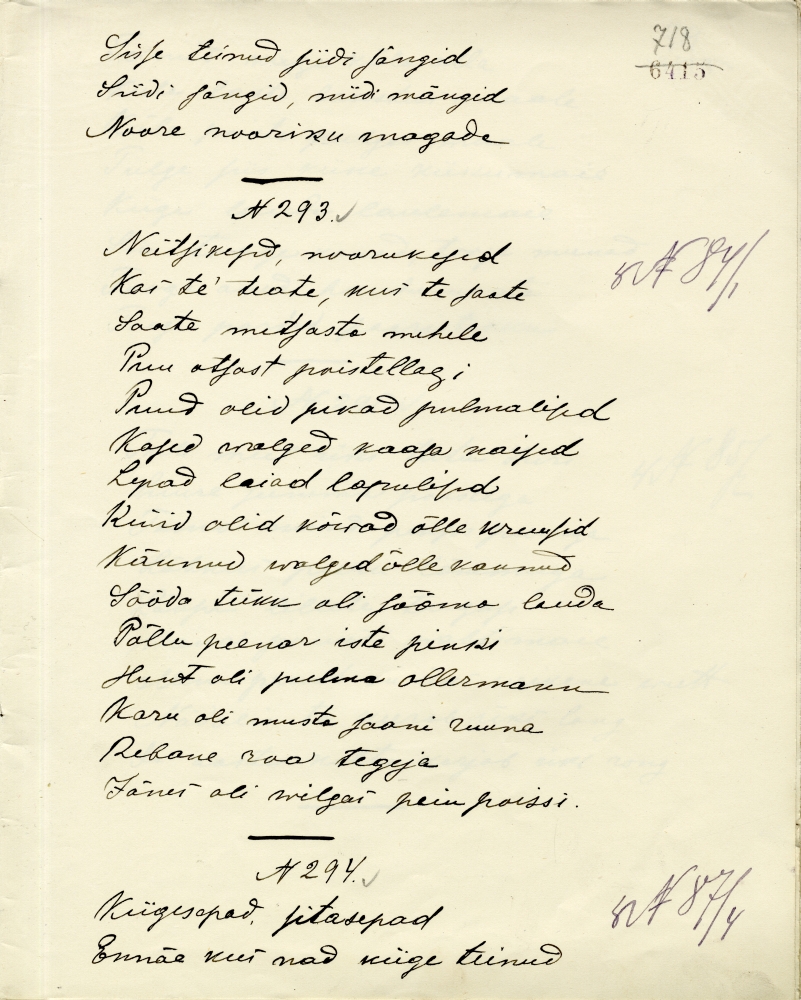 718
6415
Sisse teinud siidi sängid
Siidi sängid, siidi mängid
Noore nooriku magada
N 293.
Neitsikesed, noorukesed
Kas te' teate, kus te saate
Saate metsasta mehele
Puu otsast poistellagi
Puud olid pikad pulmalised
Kased walged kaasa naised
Lepad laiad lapulised
Küüid olid kõwad õlle kruusid
Kännud walged õlle kannud
Sööda tükk oli sööma lauda
Põllu peenar iste pinki
Hunt oli pulma ollermann
Karu oli musta saani ruuna
Rebane roa tegeja
Jänes oli wilgas pein poissi.
N 294.
Kiigesepad, sitasepad
Ennäe kus nad kiige teinud
N 84/1
N 87/4